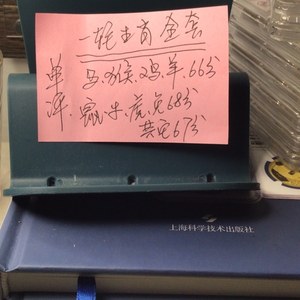 一轮生肖全套
单评
马.猴.鸡.羊.66分
鼠.牛.虎.兔68分
其它67分
上海科学技术出版社